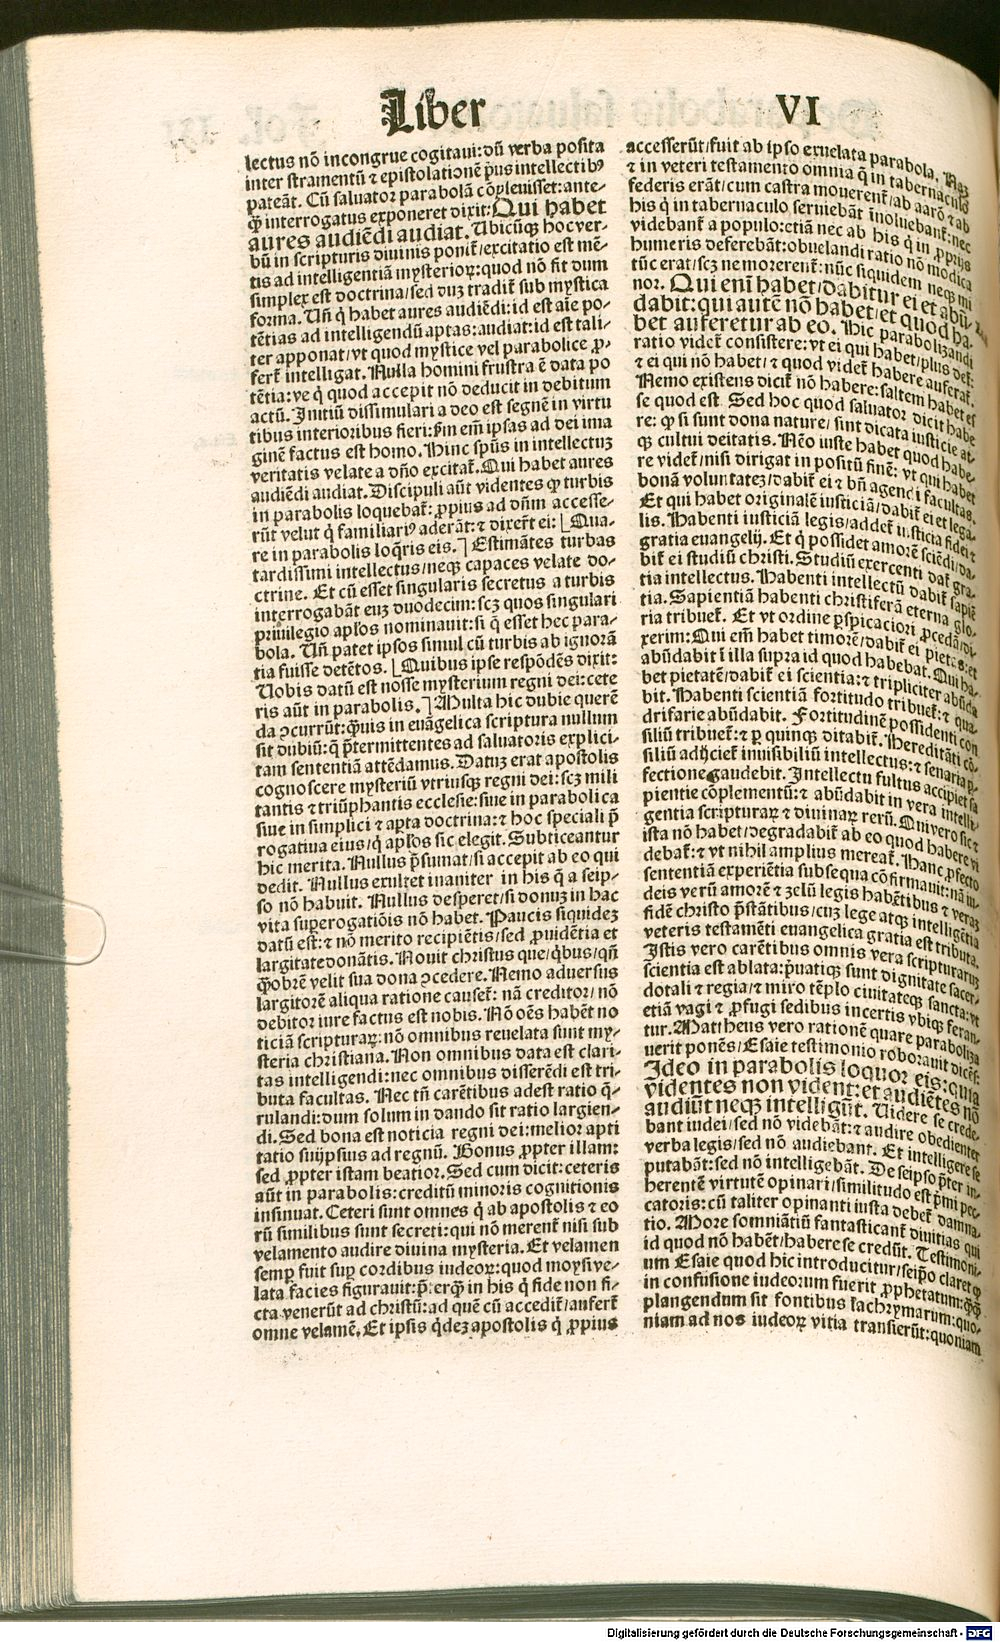 Liber VI
lectus nō incongrue cogitaui: dū verba posita
inter stramentū ⁊ epistolationē p̄us intellectibꝰ
pateāt. Cū saluator parabolā cōpleuisset: ante-
ꝙ̄ interrogatus exponeret dixit: Qui habet
aures audiēdi audiat. Ubicūqꝫ hoc ver-
bū in scripturis diuinis ponit᷑/excitatio est mē-
tis ad intelligentiā mysterioꝝ: quod nō fit dum
simplex est doctrina/sed duꝫ tradit᷑ sub mystica
forma. Uñ q̇ habet aures audiēdi: id est aīe po-
tētias ad intelligendū aptas: audiat: id est tali-
ter apponat/vt quod mystice vel parabolice ꝓ-
fert᷑ intelligat. Nulla homini frustra ē data po
tētia: ve q̇ quod accepit nō deducit in debitum
actū. Initiū dissimulari a deo est segnē in virtu
tibus interioribus fieri: ẜm em̄ ipsas ad dei ima
ginē factus est homo. Hinc spūs in intellectuꝫ
veritatis velate a dño excitat᷑. Qui habet aures
audiēdi audiat. Discipuli aūt videntes ꝙ turbis
in parabolis loquebat᷑: ꝓpius ad dñm accesse-
rūt velut q̇ familiariꝰ aderāt: ⁊ dixert̄ ei: [Qua-
re in parabolis loq̄ris eis.] Estimātes turbas
tardissimi intellectus/neqꝫ capaces velate do-
ctrine. Et cū esset singularis secretus a turbis
interrogabāt euꝫ duodecim: scꝫ quos singulari
priuilegio apl̄os nominauit: si q̇ esset hec para-
bola. Uñ patet ipsos simul cū turbis ab ignorā
tia fuisse detētos. [Quibus ipse respōdēs dixit:
Uobis datū est nosse mysterium regni dei: cete
ris aūt in parabolis.] Multa hic dubie querē
da ꝯcurrūt: q̄uis in euāgelica scriptura nullum
sit dubiū: q̄ p̄termittentes ad saluatoris explici-
tam sententiā attēdamus. Datuꝫ erat apostolis
cognoscere mysteriū vtriusqꝫ regni dei: scꝫ mili
tantis ⁊ triūphantis ecclesie: siue in parabolica
siue in simplici ⁊ aꝑta doctrina: ⁊ hoc speciali p̄
rogatiua eius/q̇ apl̄os sic elegit. Subticeantur
hic merita. Nullus p̄sumat/si accepit ab eo qui
dedit. Nullus exultet inaniter in his q̄ a seip-
so nō habuit. Nullus desperet/si donuꝫ in hac
vita superogatiōis nō habet. Paucis siquideꝫ
datū est: ⁊ nō merito recipiētis/sed ꝓuidētia et
largitate donātis. Nouit christus que/q̇bus/qñ
q̄obrē velit sua dona ꝯcedere. Nemo aduersus
largitorē aliqua ratione causet᷑: nā creditor/nō
debitor iure factus est nobis. Nō oēs habēt no
ticiā scripturaꝝ: nō omnibus reuelata sunt my-
steria christiana. Non omnibus data est clari-
tas intelligendi: nec omnibus disserēdi est tri-
buta facultas. Nec tñ carētibus adest ratio q̄-
rulandi: dum solum in dando sit ratio largien-
di. Sed bona est noticia regni dei: melior apti
tatio suiipsius ad regnū. Bonus ꝓpter illam:
sed ꝓpter istam beatior. Sed cum dicit: ceteris
aūt in parabolis: creditū minoris cognitionis
insinuat. Ceteri sunt omnes q̇ ab apostolis ⁊ eo
rū similibus sunt secreti: qui nō merent᷑ nisi sub
velamento audire diuina mysteria. Et velamen
semꝑ fuit suꝑ cordibus iudeoꝝ: quod moysi ve-
lata facies figurauit: p̄: ergꝫ in his q̇ fide non fi-
cta venerūt ad christū: ad quē cū accedit᷑/aufert᷑
omne velamē. Et ipsis q̇deꝫ apostolis q̇ ꝓpius
accesserūt/fuit ab ipso exuelata parabola. Naꝫ
⁊ in veteri testamento omnia q̄ in tabernaculo
federis erāt/cum castra mouerent᷑/ab aarō ⁊ ab
his q̇ in tabernaculo seruiebāt īnoluebant᷑: nec
videbant᷑ a populo: etiā nec ab his q̇ in ꝓprijs
humeris deferebāt: obuelandi ratio nō modica
tūc erat/scꝫ ne morerent᷑: nūc siquidem neqꝫ mi
nor. Qui enī habet/dabitur ei et abū-
dabit: qui autē nō habet/et quod ha-
bet auferetur ab eo. Hic parabolizandi
ratio videt᷑ consistere: vt ei qui habet/plus det᷑:
⁊ ei qui nō habet/⁊ quod videt᷑ habere auferat᷑.
Nemo existens dicit᷑ nō habere: saltem habet es
se quod est. Sed hoc quod saluator dicit habe
re: ꝙ si sunt dona nature/sint dicata iusticie at-
qꝫ cultui deitatis. Nēo iuste habet quod habe-
re videt᷑/nisi dirigat in positū finē: vt qui habet
bonā voluntateꝫ/dabit᷑ ei ⁊ bñ agendi facultas.
Et qui habet originalē iusticiā/dabit᷑ ei et lega-
lis. Habenti iusticiā legis/addet᷑ iusticia fidei ⁊
gratia euangelij. Et q̇ possidet amorē sciēdi/da-
bit᷑ ei studiū christi. Studiū exercenti dat᷑ gra-
tia intellectus. Habenti intellectū dabit᷑ sapiē
tia. Sapientiā habenti christiferā eterna glo-
ria tribuet᷑. Et vt ordine ꝑspicaciori ꝓcedā/di-
xerim: Qui em̄ habet timorē/dabit᷑ ei pietas: et
abūdabit ī illa supra id quod habebat. Qui ha-
bet pietatē/dabit᷑ ei scientia: ⁊ tripliciter abūda
bit. Habenti scientiā fortitudo tribuet᷑: ⁊ qua-
drifarie abūdabit. Fortitudinē possidenti con
siliū tribuet᷑: ⁊ ꝑ quinqꝫ ditabit᷑. Hereditāti cō-
siliū adijciet᷑ inuisibiliū intellectus: ⁊ senaria ꝑ-
fectione gaudebit. Intellectu fultus accipiet sa
pientie cōplementū: ⁊ abūdabit in vera intelli-
gentia scripturaꝝ ⁊ diuinaꝝ rerū. Qui vero sic ⁊
ista nō habet/degradabit᷑ ab eo quod habere vi
debat᷑: ⁊ vt nihil amplius mereat᷑. Hanc ꝓfecto
sententiā experiētia subsequa cōfirmauit: nā iu-
deis verū amorē ⁊ zelū legis habētibus ⁊ veraꝫ
fidē christo p̄stātibus/cuꝫ lege atqꝫ intelligētia
veteris testamēti euangelica gratia est tributa.
Istis vero carētibus omnis vera scripturaruꝫ
scientia est ablata: p̄uatiqꝫ sunt dignitate sacer-
dotali ⁊ regia/⁊ miro tēplo ciuitateqꝫ sancta: vt
etiā vagi ⁊ ꝓfugi sedibus incertis vbiqꝫ feran-
tur. Mattheus vero rationē quare paraboliza
uerit ponēs/Esaie testimonio roborauit dicēs:
Ideo in parabolis loquor eis: quia
videntes non vident: et audiētes nō
audiūt neqꝫ intelligūt. Uidere se crede-
bant iudei/sed nō videbāt: ⁊ audire obedienter
verba legis/sed nō audiebant. Et intelligere se
putabāt: sed nō intelligebāt. De seipso p̄ter in-
herentē virtutē opinari/similitudo est p̄mi pec-
catoris: cū taliter opinanti iusta debet᷑ damna-
tio. More somniātiū fantasticant᷑ diuitias qui
id quod nō habēt/habere se credūt. Testimoni-
um Esaie quod hic introducitur/seip̄o claret ꝙ
in confusione iudeorum fuerit ꝓphetatum: q̄qꝫ
plangendum sit fontibus lachrymarum: quo-
niam ad nos iudeoꝝ vitia transierūt: quoniam
Digitalisierung gefördert durch die Deutsche Forschungsgemeinschaft - DFG